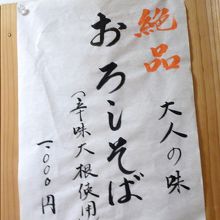 大人の味
絶品
おろしそば
(辛味大根使用)
一、〇〇〇円